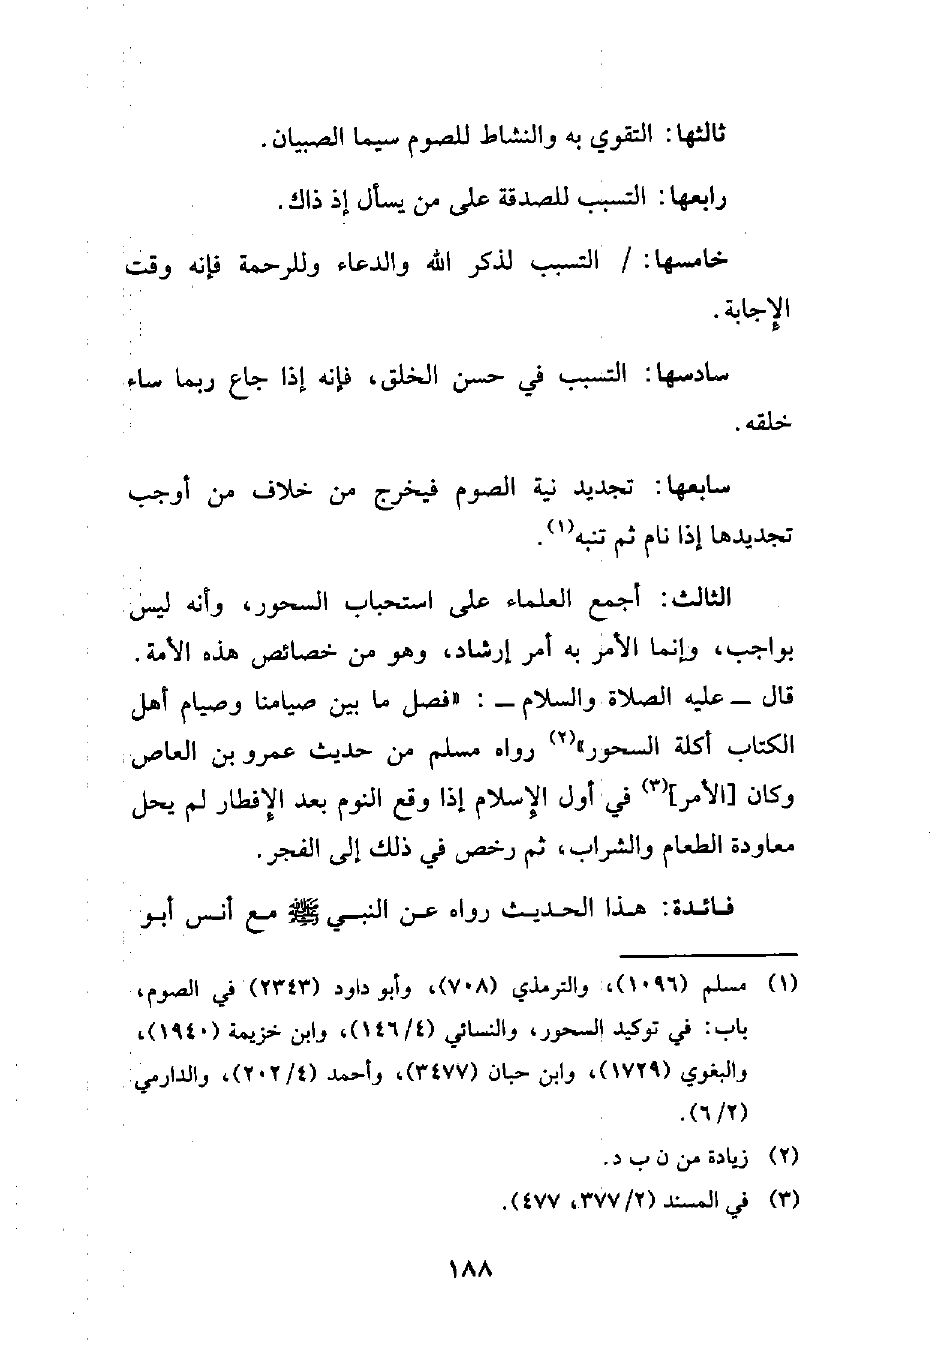 ثالثها: التقوي به والنشاط للصوم سيما الصبيان.
رابعها: التسبب للصدقة على من يسأل إذ ذاك.
خامسها: / التسبب لذكر الله والدعاء وللرحمة فإنه وقت
الإجابة.
سادسها: التسبب في حسن الخلق، فإنه إذا جاع ربما ساء
خلقه.
سابعها: تجديد نية الصوم فيخرج من خلاف من أوجب
تجديدها إذا نام ثم تنبه(١).
الثالث: أجمع العلماء على استحباب السحور، وأنه ليس
بواجب، وإنما الأمر به أمر إرشاد، وهو من خصائص هذه الأمة.
قال ـ عليه الصلاة والسلام ـ : «فصل ما بين صيامنا وصيام أهل
الكتاب أكلة السحور»(٢) رواه مسلم من حديث عمرو بن العاص
وكان [الأمر](٣) في أول الإسلام إذا وقع النوم بعد الإفطار لم يحل
معاودة الطعام والشراب، ثم رخص في ذلك إلى الفجر.
فائدة: هذا الحديث رواه عن النبي ﷺ مع أنس أبو
(١) مسلم (١٠٩٦)، والترمذي (٧٠٨)، وأبو داود (٢٣٤٣) في الصوم،
باب: في توكيد السحور، والنسائي (١٤٦/٤)، وابن خزيمة (١٩٤٠)،
والبغوي (١٧٢٩)، وابن حبان (٣٤٧٧)، وأحمد (٢٠٢/٤)، والدارمي
(٦/٢).
(٢) زيادة من ن ب د.
(٣) في المسند (٣٧٧/٢، ٤٧٧).
١٨٨